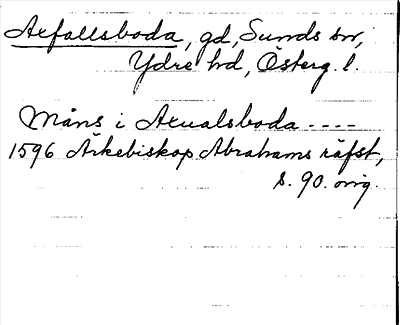 Axfallsboda, gd, Sunds sn,
Ydre hd, Österg. l.
Måns i Axualsboda ----
1596 Ärkebiskop Abrahams räfst,
s. 90. orig.